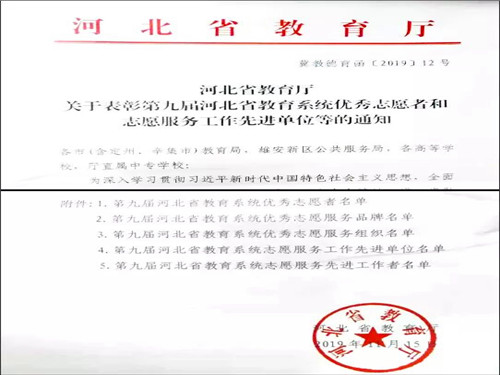 河北省教育厅
冀教德育函〔2019〕12号
河北省教育厅
关于表彰第九届河北省教育系统优秀志愿者和
志愿服务工作先进单位等的通知
各市(含定州、辛集市)教育局，雄安新区公共服务局，各高等学
校，厅直属中专学校：
为深入学习贯彻习近平新时代中国特色社会主义思想，全面
附件：1. 第九届河北省教育系统优秀志愿者名单
2. 第九届河北省教育系统志愿服务品牌名单
3. 第九届河北省教育系统优秀志愿服务组织名单
4. 第九届河北省教育系统志愿服务工作先进单位名单
5. 第九届河北省教育系统志愿服务先进工作者名单
河北省教育厅
河北省教育厅
2019年 月15日